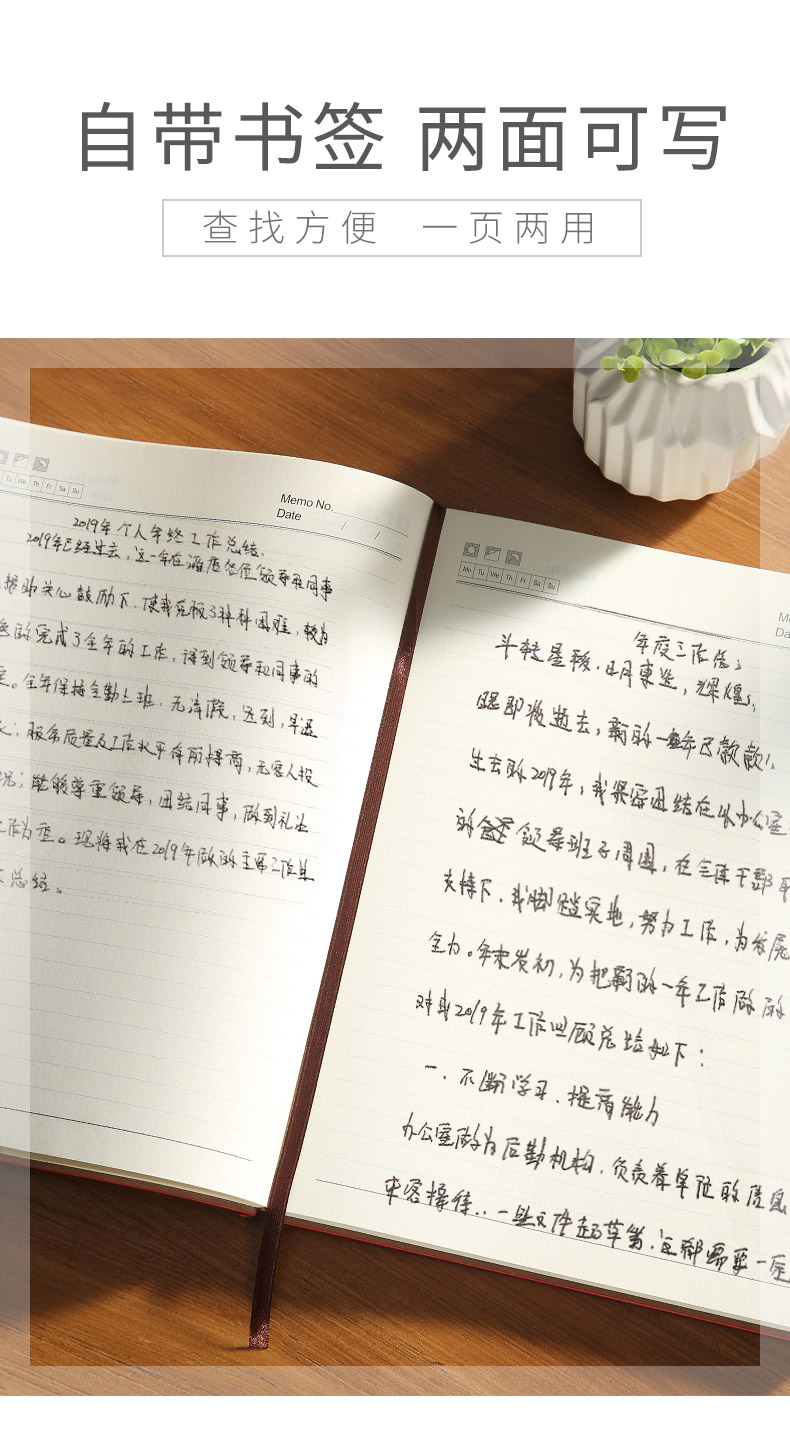 自带书签 两面可写
查找方便 一页两用
Memo No.
Date / /
Tu We Th Fr Sa Su
2019年个人年终工作总结、
2019年已经过去，这一年在酒店各位领导和同事
帮助关心鼓励下，使我克服了种种困难，较为
的完成了全年的工作，得到领导和同事的
。全年保持全勤上班、无请假，迟到，早退
；服务质量及工作水平有所提高，无客人投
况；能够尊重领导，团结同事，做到礼让
工作为重。现将我在2019年做的主要工作
总结。
Mo Tu We Th Fr Sa Su
年度工作总
斗转星移、日月東逝，辉煌
眼即将逝去，新的一年已款款
生去的2019年，我紧密团结在以办公室
的领导班子周围，在全体干部
支持下，我脚踏实地，努力工作，为发展
全力。年末岁初，为把新的一年工作做的
对我2019年工作回顾总结如下：
一、不断学习、提高能力
办公室做为后勤机构、负责着单位的信息
来客接待、、一些文件起草等、这都需要一定